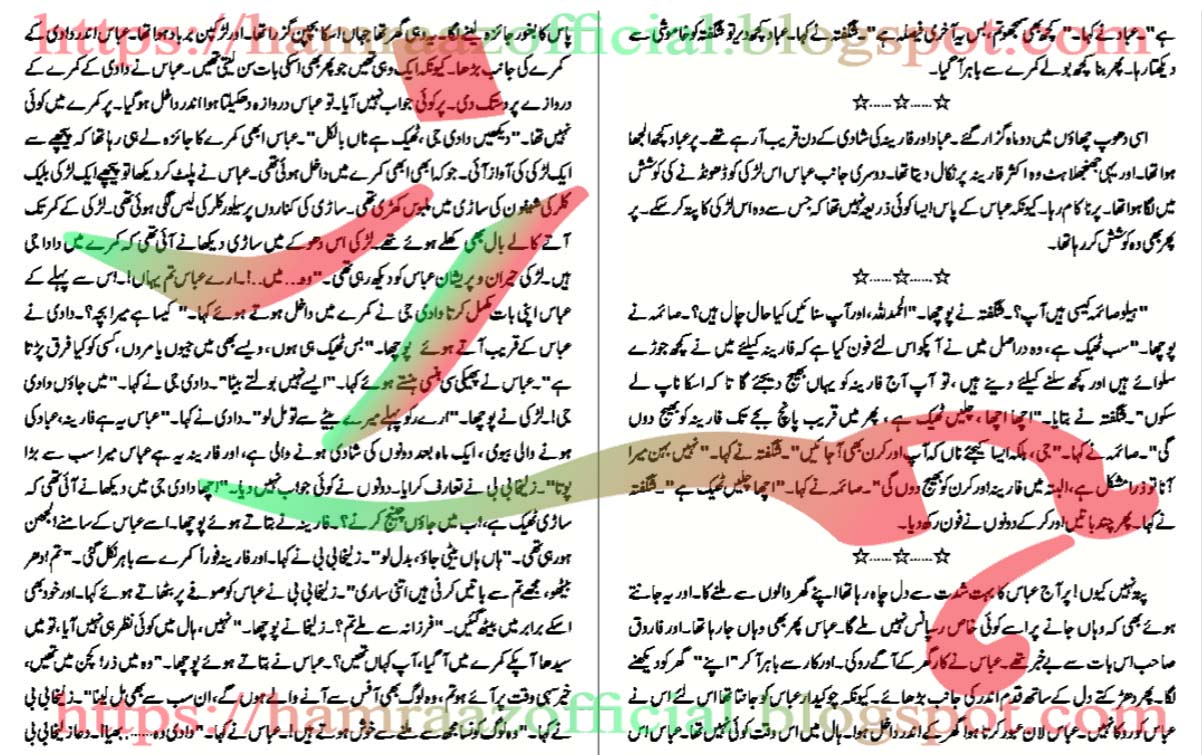 https://hamraazofficial.blogspot.com
ہے"۔ عباد نے کہا۔" کچھ بھی سمجھو تم، بس یہ آخری فیصلہ ہے"۔ شگفتہ نے کہا۔ عباد کچھ دیر تو شگفتہ کو خاموشی سے
دیکھتا رہا۔ پھر بنا کچھ بولے کمرے سے باہر آ گیا۔
☆......☆......☆
اسی دھوپ چھاؤں میں دو ماہ گزار گئے۔ عباد اور فارینہ کی شادی کے دن قریب آ رہے تھے۔ پر عباد کچھ الجھا
ہوا تھا۔ اور یہی جھنجھلاہٹ وہ اکثر فارینہ پر نکال دیتا تھا۔ دوسری جانب عباس اس لڑکی کو ڈھونڈنے کی کوشش
میں لگا ہوا تھا۔ پر ناکام رہا۔ کیونکہ عباس کے پاس ایسا کوئی ذریعہ نہیں تھا کہ جس سے وہ اس لڑکی کا پتہ کر سکے۔ پر
پھر بھی وہ کوشش کر رہا تھا۔
☆......☆......☆
"ہیلو صائمہ کیسی ہیں آپ؟۔ شگفتہ نے پوچھا۔ "الحمدللہ، اور آپ سنائیں کیا حال چال ہیں؟۔ صائمہ نے
پوچھا۔ "سب ٹھیک ہے، وہ دراصل میں نے آپکو اس لئے فون کیا ہے کہ فارینہ کیلئے میں نے کچھ جوڑے
سلوائے ہیں اور کچھ سلنے کیلئے دینے ہیں، تو آپ آج فارینہ کو یہاں بھیج دیجئے گا تا کہ اسکا ناپ لے
سکوں"۔ شگفتہ نے بتایا۔ "اچھا اچھا، چلیں ٹھیک ہے، پھر میں قریب پانچ بجے تک فارینہ کو بھیج دوں
گی"۔ صائمہ نے کہا۔ "جی، بلکہ ایسا کیجئے ناں کہ آپ اور کرن بھی آ جائیں"۔ شگفتہ نے کہا۔ "نہیں بہن میرا
آنا تو ذرا مشکل ہے، البتہ میں فارینہ اور کرن کو بھیج دوں گی"۔ صائمہ نے کہا۔ "اچھا چلیں ٹھیک ہے"۔ شگفتہ
نے کہا۔ پھر چند باتیں اور کر کے دونوں نے فون رکھ دیا۔
☆......☆......☆
پتہ نہیں کیوں! پر آج عباس کا بہت شدت سے دل چاہ رہا تھا اپنے گھر والوں سے ملنے کا۔ اور یہ جانتے
ہوئے بھی کہ وہاں جانے پر اسے کوئی خاص رسپانس نہیں ملے گا۔ عباس پھر بھی وہاں جا رہا تھا۔ اور فاروق
صاحب اس بات سے بے خبر تھے۔ عباس نے کار گھر کے آگے روکی۔ اور کار سے باہر آ کر "اپنے" گھر کو دیکھنے
لگا۔ پھر دھڑکتے دل کے ساتھ قدم اندر کی جانب بڑھائے۔ کیونکہ چوکیدار عباس کو جانتا تھا اس لئے اس نے
عباس کو روکا نہیں۔ عباس لان عبور کرتا ہوا گھر کے اندر داخل ہوا۔ ہال میں اس وقت کوئی نہیں تھا۔ عباس اس
پاس کا بغور جائزہ لینے لگا۔ یہ وہی گھر تھا جہاں اسکا بچپن گزرا تھا۔ اور لڑکپن برباد ہوا تھا۔ عباس اندر دادی کے
کمرے کی جانب بڑھا۔ کیونکہ ایک وہی تھیں جو پھر بھی اسکی بات سن لیتی تھیں۔ عباس نے دادی کے کمرے کے
دروازے پر دستک دی۔ پر کوئی جواب نہیں آیا۔ تو عباس دروازہ دھکیلتا ہوا اندر داخل ہو گیا۔ پر کمرے میں کوئی
نہیں تھا۔ "دیکھیں دادی جی، ٹھیک ہے ناں بالکل"۔ عباس ابھی کمرے کا جائزہ لے ہی رہا تھا کہ پیچھے سے
ایک لڑکی کی آواز آئی۔ جو کہ ابھی ابھی کمرے میں داخل ہوئی تھی۔ عباس نے پلٹ کر دیکھا تو پیچھے ایک لڑکی بلیک
کلر کی شیفون کی ساڑی میں ملبوس کھڑی تھی۔ ساڑی کی کناروں پر سیلور کلر کی لیس لگی ہوئی تھی۔ لڑکی کے کمر تک
آتے کالے بال بھی کھلے ہوئے تھے۔ لڑکی اس دھوکے میں ساڑی دیکھانے آئی تھی کہ کمرے میں دادا جی
ہیں۔ لڑکی حیران و پریشان عباس کو دیکھ رہی تھی۔ "وہ... میں..!۔ ارے عباس تم یہاں!۔ اس سے پہلے کے
عباس اپنی بات مکمل کرتا دادی جی نے کمرے میں داخل ہوتے ہوئے کہا۔ "کیسا ہے میرا بچہ؟۔ دادی نے
عباس کے قریب آتے ہوئے پوچھا۔ "بس ٹھیک ہی ہوں، ویسے بھی میں جیوں یا مروں، کسی کو کیا فرق پڑتا
ہے"۔ عباس نے پھیکی سی ہنسی ہنستے ہوئے کہا۔ "ایسے نہیں بولتے بیٹا"۔ دادی جی نے کہا۔ "میں جاؤں دادی
جی!۔ لڑکی نے پوچھا۔ "ارے رکو پہلے میرے بیٹے سے تو مل لو"۔ دادی نے کہا۔ "عباس یہ ہے فارینہ، عباد کی
ہونے والی بیوی، ایک ماہ بعد دونوں کی شادی ہونے والی ہے، اور فارینہ یہ ہے عباس میرا سب سے بڑا
پوتا"۔ زلیخا بی بی نے تعارف کرایا۔ دونوں نے کوئی جواب نہیں دیا۔ "اچھا دادی جی میں دیکھانے آئی تھی کہ
ساڑی ٹھیک ہے، اب میں جاؤں چینج کرنے؟۔ فارینہ نے بتاتے ہوئے پوچھا۔ اسے عباس کے سامنے الجھن
ہو رہی تھی۔ "ہاں ہاں بیٹی جاؤ، بدل لو"۔ زلیخا بی بی نے کہا۔ اور فارینہ فوراً کمرے سے باہر نکل گئی۔ "تم ادھر
بیٹھو، مجھے تم سے باتیں کرنی ہیں اتنی ساری"۔ زلیخا بی بی نے عباس کو صوفے پر بٹھاتے ہوئے کہا۔ اور خود بھی
اسکے برابر میں بیٹھ گئیں۔ "فرزانہ سے ملے تم؟۔ زلیخا نے پوچھا۔ "نہیں، ہال میں کوئی نظر ہی نہیں آیا، تو میں
سیدھا آپکے کمرے میں آ گیا، آپ کہاں تھیں؟۔ عباس نے بتاتے ہوئے پوچھا۔ "وہ میں ذرا کچن میں تھیں،
خیر سہی وقت پر آئے ہو تم، وہ لوگ بھی آفس سے آنے والے ہوں گے، ان سب سے بھی مل لینا"۔ زلیخا بی بی
نے کہا۔ "وہ لوگ کونسا مجھ سے ملنے سے خوش ہوتے ہیں!۔ عباس نے کہا۔ "دادی وہ......
https://hamraazofficial.blogspot.com